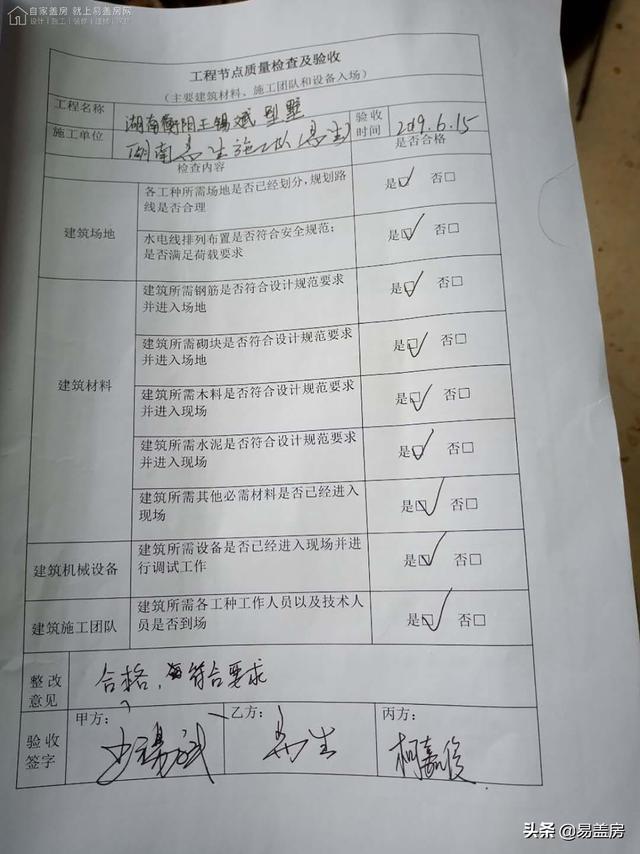 自家盖房 就上易盖房网
设计|施工|装修|建材|家居
工程节点质量检查及验收
(主要建筑材料、施工团队和设备入场)
工程名称 湖南衡阳王锡斌别墅 验收时间 2019.6.15
施工单位 湖南易生施工队(易生)
检查内容 是否合格
建筑场地
各工种所需场地是否已经划分,规划路
线是否合理 是☑ 否□
水电线排列布置是否符合安全规范;
是否满足荷载要求 是☑ 否□
建筑材料
建筑所需钢筋是否符合设计规范要求
并进入场地 是☑ 否□
建筑所需砌块是否符合设计规范要求
并进入场地 是☑ 否□
建筑所需木料是否符合设计规范要求
并进入现场 是☑ 否□
建筑所需水泥是否符合设计规范要求
并进入现场 是☑ 否□
建筑所需其他必需材料是否已经进入
现场 是☑ 否□
建筑机械设备
建筑所需设备是否已经进入现场并进
行调试工作 是☑ 否□
建筑施工团队
建筑所需各工种工作人员以及技术人
员是否到场 是☑ 否□
整改
意见
合格,符合要求
验收
签字
甲方: 王锡斌
乙方: 易生
丙方: 柯嘉俊
头条 @易盖房